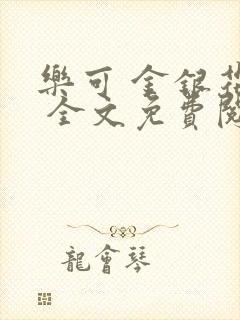 樂可 金銀花
全文免費閱
龍會琴